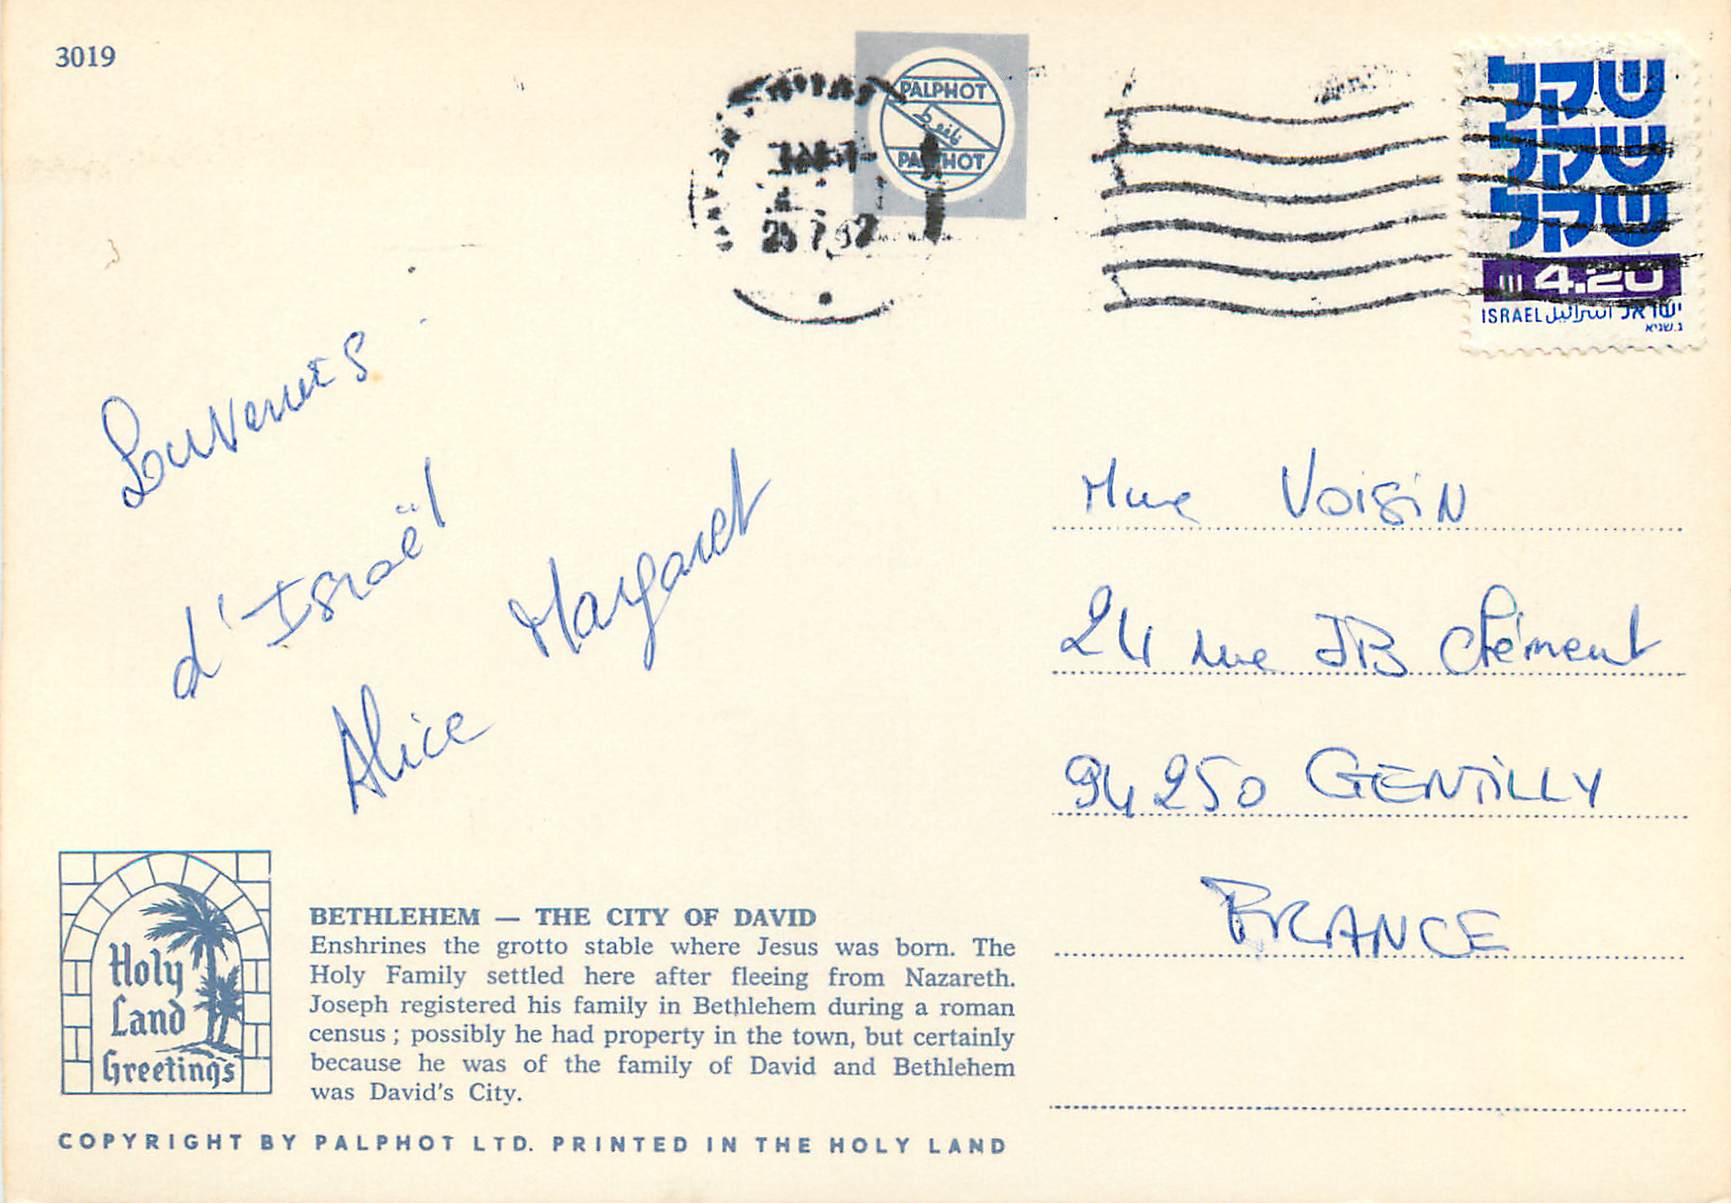 3019
PALPHOT
PALPHOT
שקל
שקל
שקל
4.20
ISRAEL اسرائيل ישראל
Souvenirs
d'Israël
Margaret
Alice
Mme Voisin
24 rue JB Clément
94250 GENTILLY
FRANCE
Holy
Land
Greetings
BETHLEHEM — THE CITY OF DAVID
Enshrines the grotto stable where Jesus was born. The
Holy Family settled here after fleeing from Nazareth.
Joseph registered his family in Bethlehem during a roman
census ; possibly he had property in the town, but certainly
because he was of the family of David and Bethlehem
was David's City.
COPYRIGHT BY PALPHOT LTD. PRINTED IN THE HOLY LAND